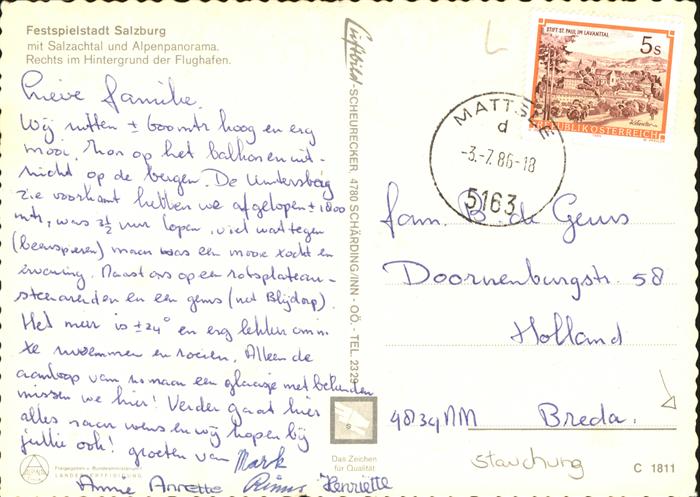 Festspielstadt Salzburg
mit Salzachtal und Alpenpanorama.
Rechts im Hintergrund der Flughafen.
Lieve familie.
Wij zitten ± 600 mtr hoog en erg
mooi, hier op het balkon en uit-
zicht op de bergen. De Untersberg
zie voorkant hebben we afgelopen ± 1800
mtr, was 3½ uur lopen, viel wat tegen
(beenspieren) maar was een mooie tocht en
ervaring. Naast ons op een rotsplateau-
steenarenden en een gems (net Blijdorp).
Het meer is ± 24° en erg lekker om in
te zwemmen en roeien. Alleen de
aanloop van zomaar een glaasje met bekenden
missen we hier! Verder gaat hier
alles naar wens en wij hopen bij
jullie ook! groeten van Mark
Annie Annette Rinus Henriëtte
Luftbild-SCHEURECKER, 4780 SCHÄRDING/INN - OÖ. - TEL. 2329
STIFT ST. PAUL IM LAVANTTAL
5s
REPUBLIK ÖSTERREICH
MATTSEE
d
-3.-7.86-18
5163
fam. B. de Geus
Doornenburgstr. 58
Holland
4834NM Breda.
stauchung
s
Das Zeichen
für Qualität
C 1811